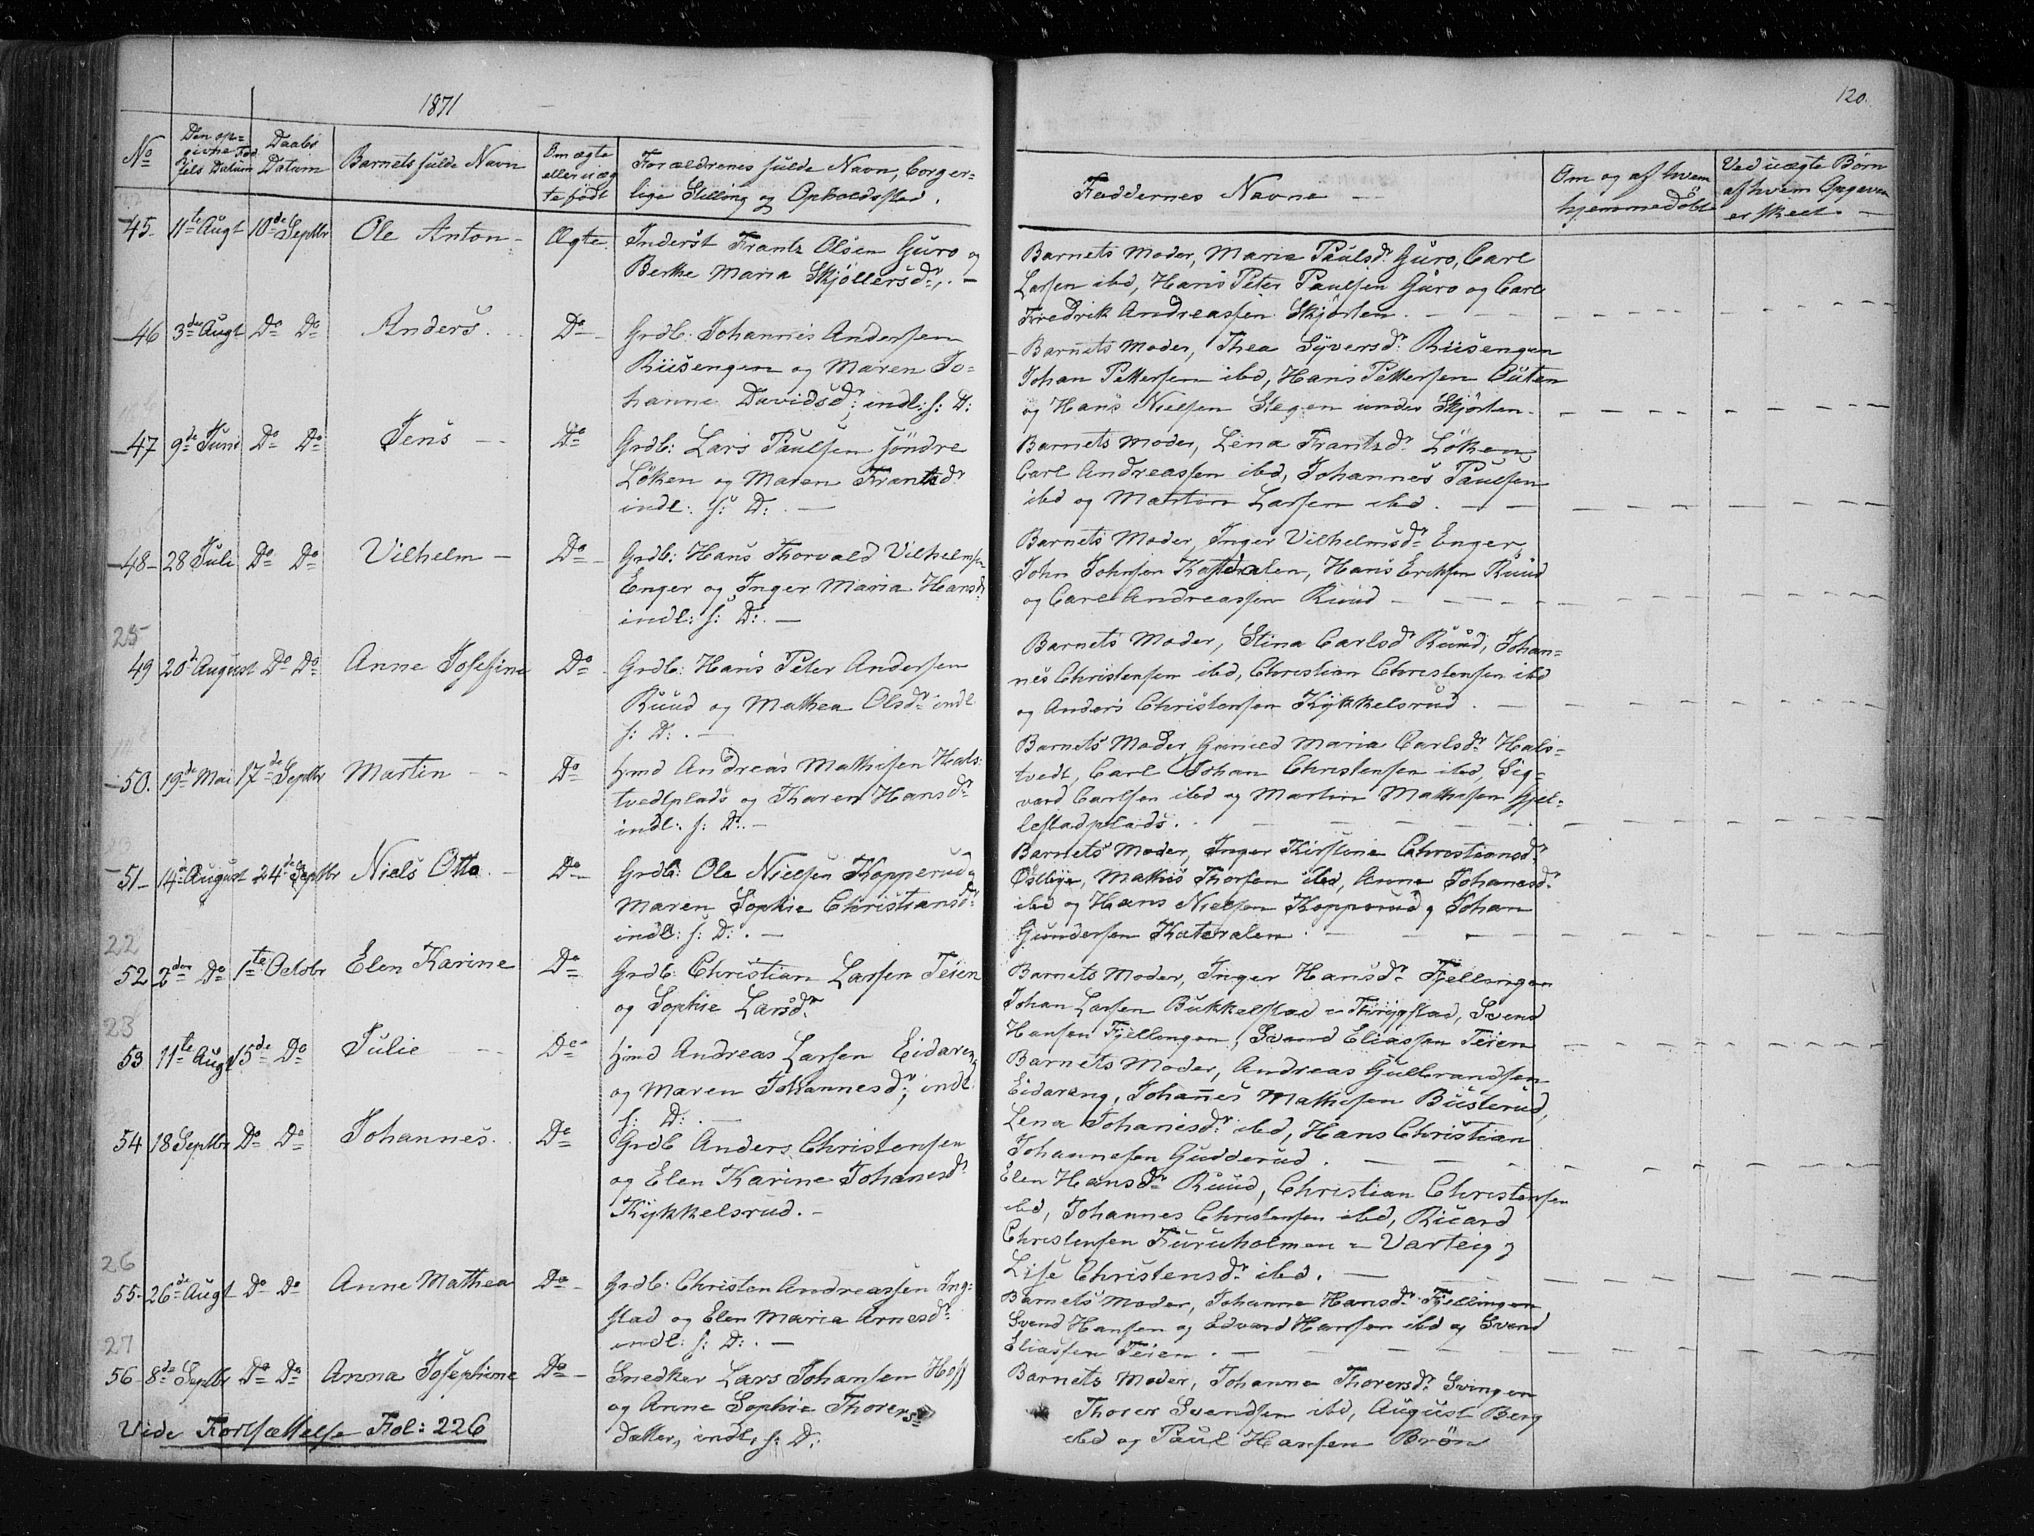 1871
120.
No
Den op=
givne Fød
sels Datum
Daabs
Datum
Barnets fulde Navn
Om ægte
eller uæg
te født
Forældrenes fulde Navn, borger=
lige Stilling og Opholdssted.
Faddernes Navne
Om og af hvem
hjemmedøbt
Ved uægte Børn
af hvem Opgaven
er skeet.
45. 11te Augt 10de Septbr Ole Anton Ægte Inderst Frantz Olsen Guro og
Berthe Maria Skjöllersdr.
Barnets Moder, Maria Paulsdr Guro, Carl
Larsen ibd, Hans Peter Paulsen Guro og Carl
Fredrik Andreassen Skjørten.
46 3de Augt Do Do Anders Do Grdb: Johannes Andersen
Riisengen og Maren Jo=
hanne Davidsdr; indl: s: D:
Barnets Moder, Thea Syversdr Riisengen
Johan Pettersen ibd, Hans Pettersen
og Hans Nielsen Stegen under Skjørten.
47 9de Juni Do Do Jens Do Grdb: Lars Paulsen söndre
Löken og Maren Frantzdr
indl: s: D:
Barnets Moder, Lena Frantzdr Löken
Carl Andreassen ibd, Johannes Paulsen
ibd og Martin Larsen ibd.
48 28 Juli Do Do Vilhelm Do Grdb: Hans Thorvald Vilhelmsen
Enger og Inger Maria Hansdr
indl: s: D:
Barnets Moder, Inger Vilhelmsdr Enger
John Johnsen Katralen, Hans Eriksen Ruud
og Carl Andreassen Ruud
25
49 20de August Do Do Anne Josefine Do Grdb: Hans Peter Andersen
Ruud og Mathea Olsdr indl
s: D:
Barnets Moder, Stina Carlsdr Ruud, Johan=
nes Christensen ibd, Christian Christensen ibd
og Anders Christensen Kykkelsrud.
50. 19de Mai 17de Septbr Martin Do Hmd Andreas Mathisen Hals=
tvedtplads og Karen Hansdr
indl: s: D:
Barnets Moder, Maria Carlsdr Hals=
tvedt, Carl Johan Christensen ibd, Sig=
vard Carlsen ibd og Martin Mathisen Gjel=
lestadplads.
51 14de August 24de Septbr Niels Otto Do Grdb: Ole Nielsen Kopperud og
Maren Sophie Christiansdr
indl: s: D:
Barnets Moder, Inger Kirstine Christiansdr
Østbye, Mathis Thorsen ibd, Anne Johanesdr
ibd og Hans Nielsen Kopperud og Johan
Gundersen Katralen.
22
52 2den Do 1te Octobr Elen Karine Do Grdb: Christian Larsen Teien
og Sophie Larsdr
Barnets Moder, Inger Hansdr Fjellengen
Johan Larsen Bukkelstad i Thrygstad, Svend
Hansen Fjellengen, Svend Eliassen Teien
23
53 11te Augt 15de Do Julie Do Hmd Andreas Larsen Eidareng
og Maren Johannesdr, indl
s: D:
Barnets Moder, Andreas Gulbrandsen
Eidareng, Johannes Mathisen Busterud,
Lena Johanesdr ibd, Hans Christian
Johannesen Gudderud.
54 18 Septbr Do Do Johannes Do Grdb Anders Christensen
og Elen Karine Johanesdr
Kykkelsrud.
Elen Hansdr Ruud, Christian Christensen
ibd, Johannes Christensen ibd, Ricard
Christensen Furuholmen i Varteig og
Lise Christensdr ibd.
26
55 26de Augt Do Do Anne Mathea Do Grdb: Christen Andreassen Ing=
stad og Elen Maria Arnesdr
indl: s: D:
Barnets Moder, Johanne Hansdr Fjellengen
Svend Hansen og Edvard Hansen ibd og Svend
Eliassen Teien.
27
56 8de Septbr Do Do Anna Josephine Do Snedker Lars Johansen Hoff
og Anne Sophie Thorers
datter, indl, s: D:
Barnets Moder, Johanne Thorersdr Svingen
Thorer Svendsen ibd, August Berg
ibd og Paul Hansen Brön
Vide Fortsættelse Fol: 226